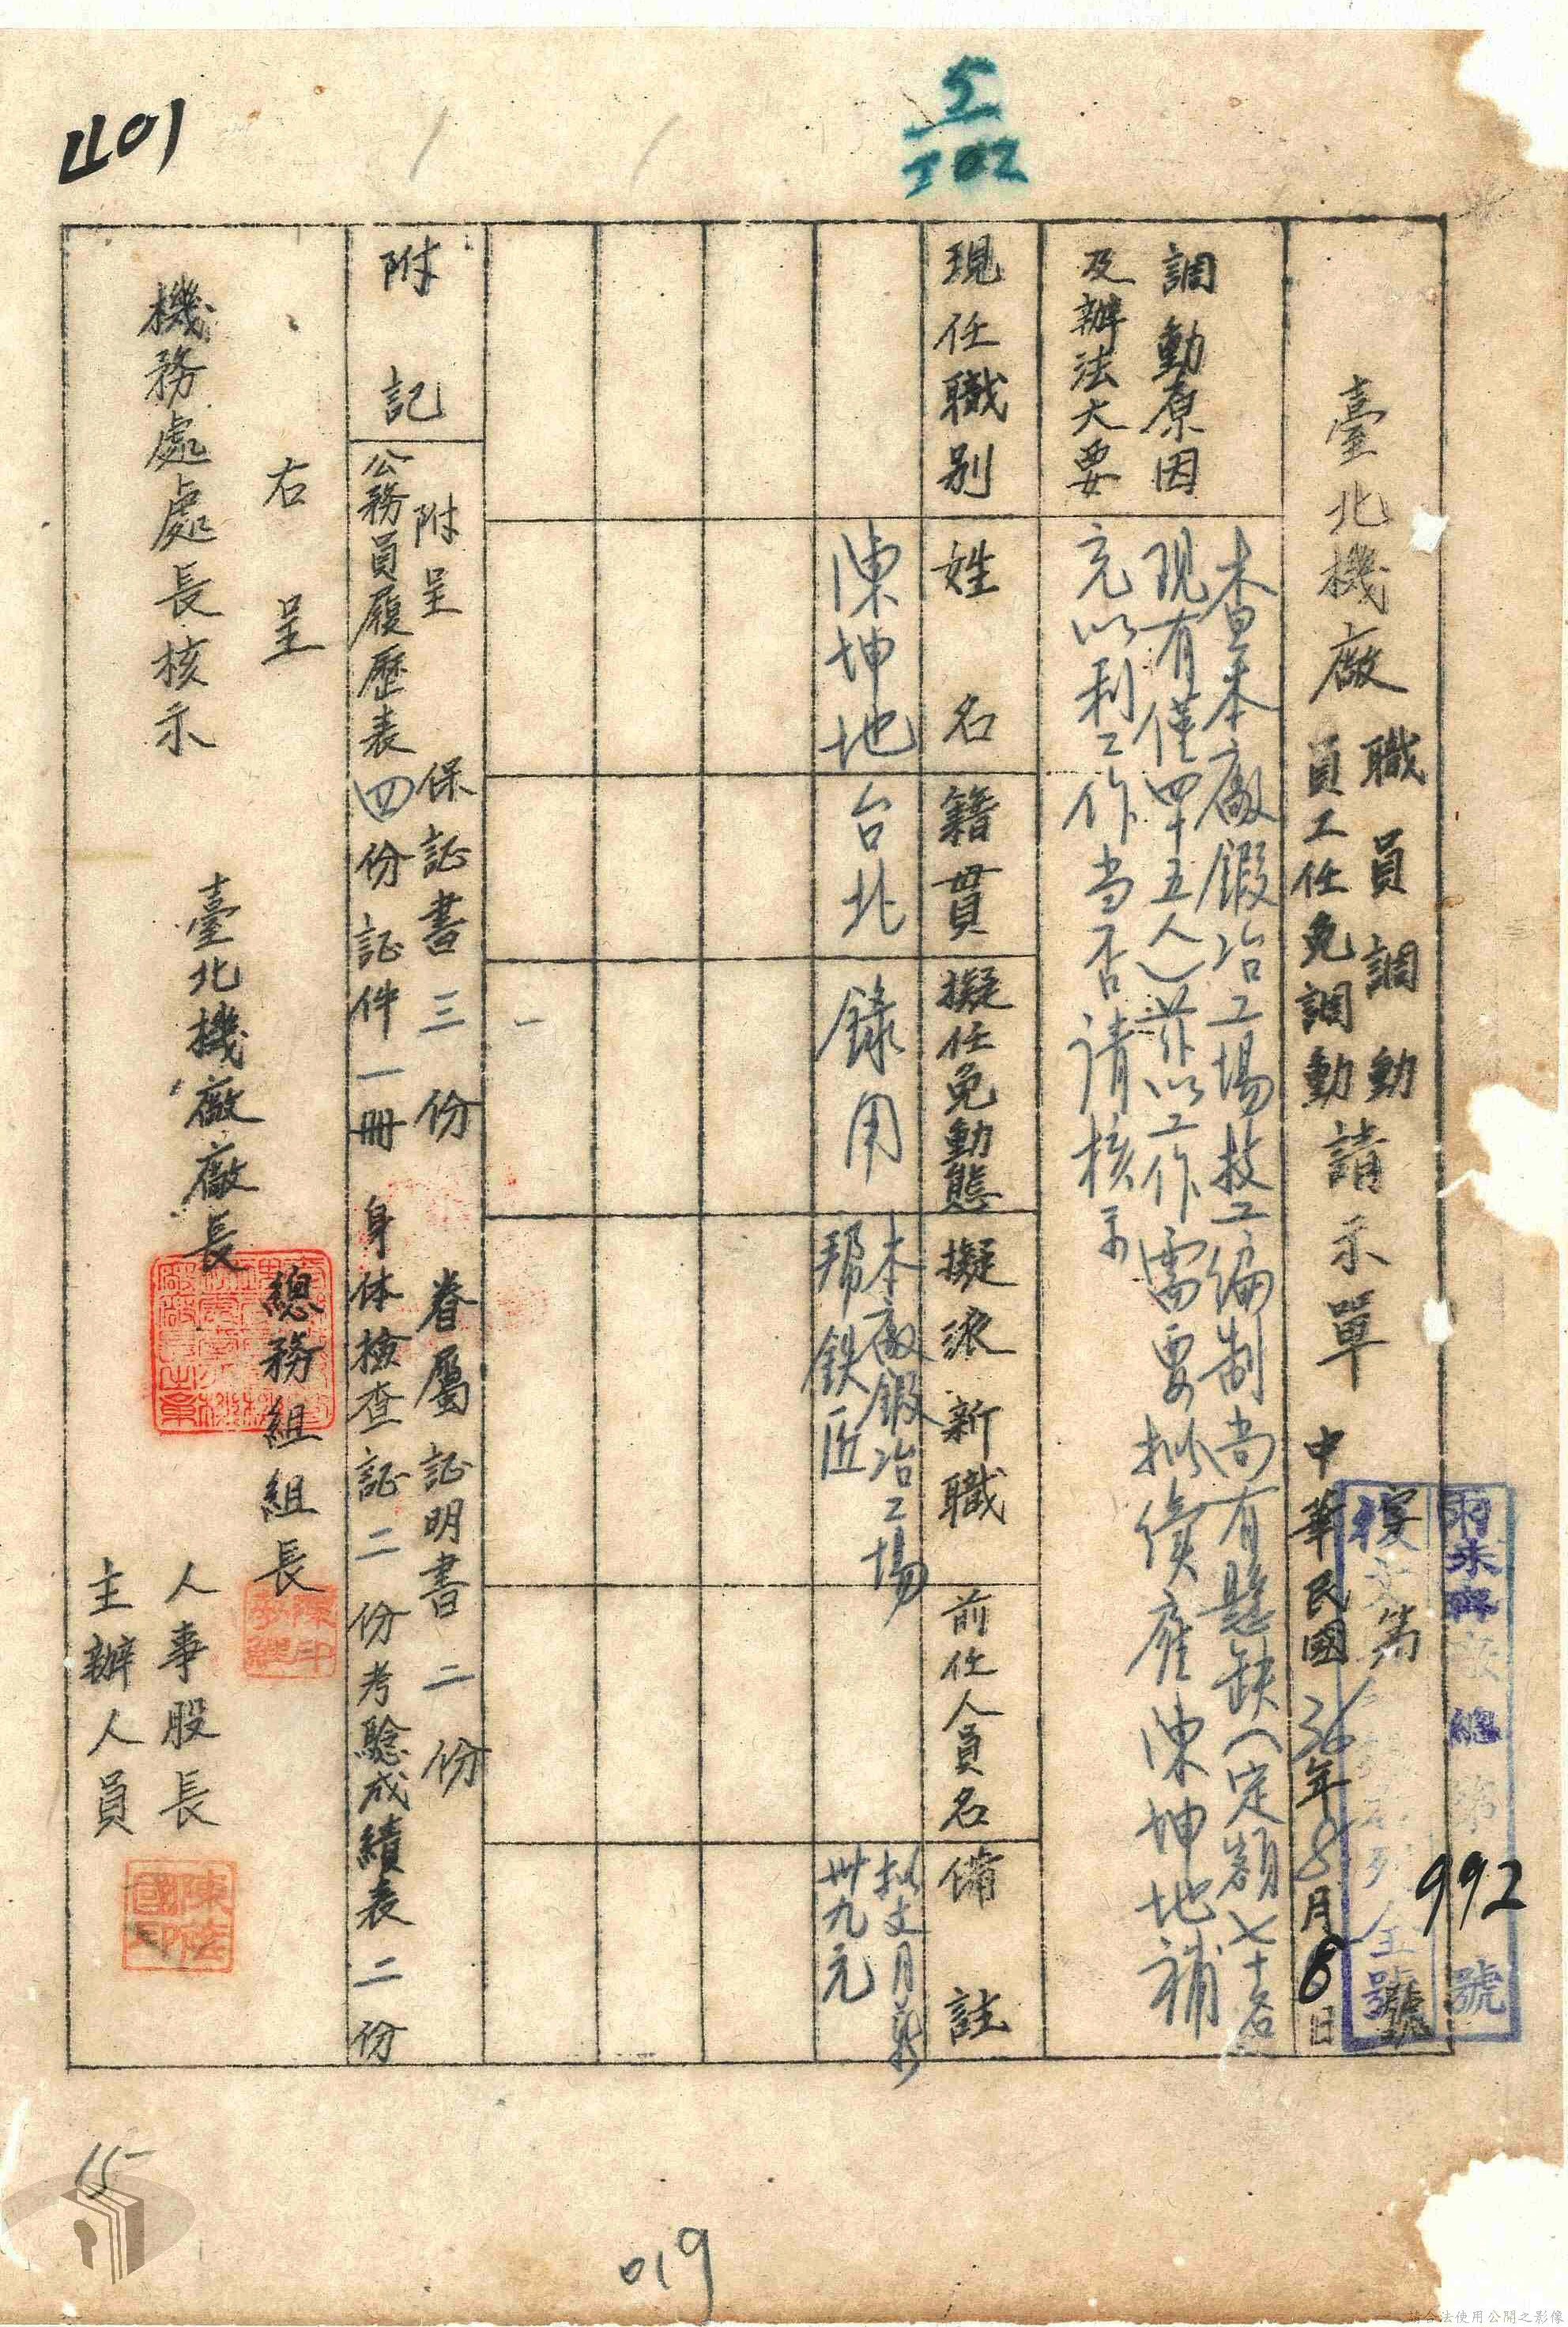 5
202
401
臺北機廠職員調動請示單
員工任免調動
中華民國36年8月8日
總第992號
調動原因
及辦法大要
查本廠鍛冶工場技工編制尚有懸缺(定額七十名
現有僅四十五人)茲以工作需要擬僱雇陳坤地補
充以利工作当否請核示
現任職別
姓名
籍貫
擬任免動態
擬派新職
前任人員名
備註
陳坤地
台北
錄用
本廠鍛冶工場
幫鉄匠
拟支月薪
卅九元
附記
附呈 保証書三份 眷屬証明書二份
公務員履歷表四份証件一冊 身体檢查証二份考驗成績表二份
右呈
機務處處長核示
臺北機廠廠長
總務組組長
人事股長
主辦人員
15
019
請合法使用公開之影像